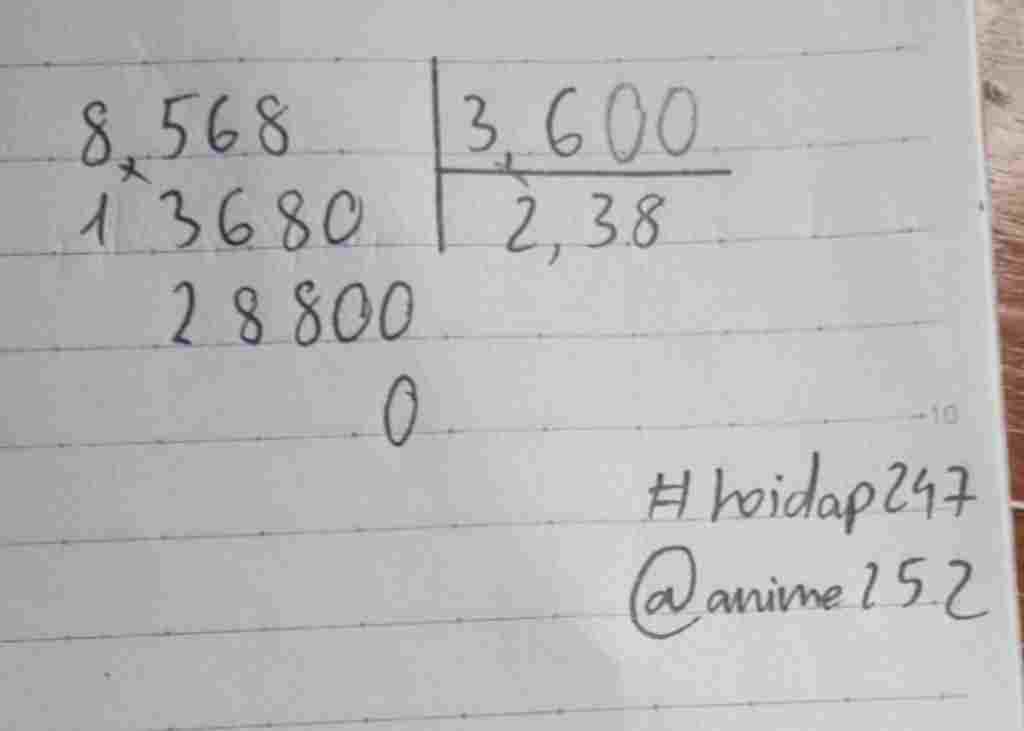 8,568 | 3,600
13680 | 2,38
28800
0
10
#hoidap247
@anime252